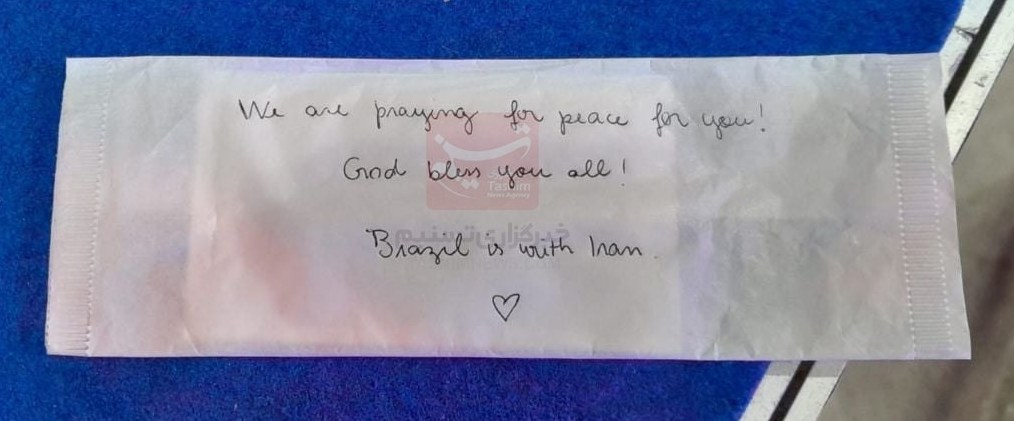 We are praying for peace for you!
God bless you all!
Tasnim
News Agency
خبرگزاری تسنیم
Brazil is with Iran